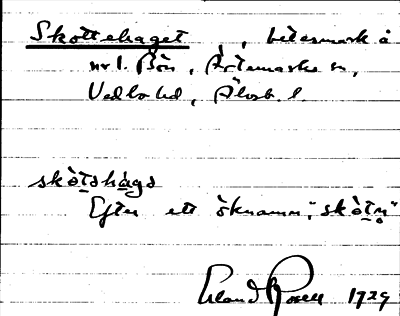 Skottehaget , betesmark å
nr 1. Bön, Ärtemarks sn,
Vedbo hd, Älvsb. l.
skòtshàgs
Efter ett öknamn, "skòtn̥"
Erland Rosell 1929